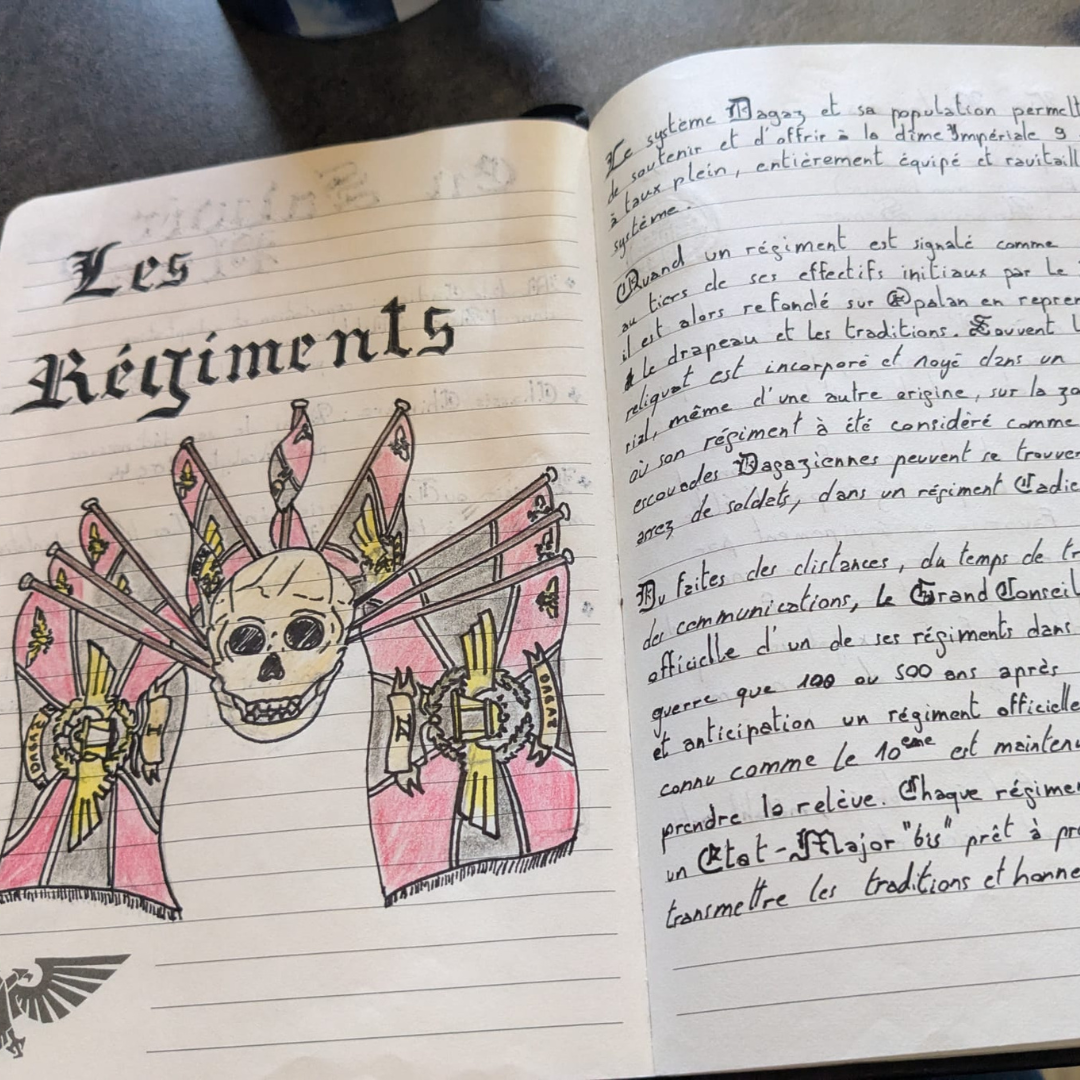 Les
Régiments
DAGAZ
I
IV
DAGAZ
Le système Dagaz et sa population permett
de soutenir et d'offrir à la dîme Impériale 9
à taux plein, entièrement équipé et ravitaill
système.
Quand un régiment est signalé comme
au tiers de ses effectifs initiaux par le
il est alors refondé sur Opalan en repren
le drapeau et les traditions. Souvent l
reliquat est incorporé et noyé dans un
rial, même d'une autre origine, sur la zo
où son régiment à été considéré comme
escouades Dagaziennes peuvent se trouver
arrez de soldats, dans un régiment Cadie
Au faites des distances, du temps de tr
des communications, le Grand Conseil
officielle d'un de ses régiments dans
guerre que 100 ou 500 ans après
et anticipation un régiment officielle
connu comme le 10eme est maintenu
prendre la relève. Chaque régimen
un Etat-Major "bis" prêt à pr
transmettre les traditions et honne